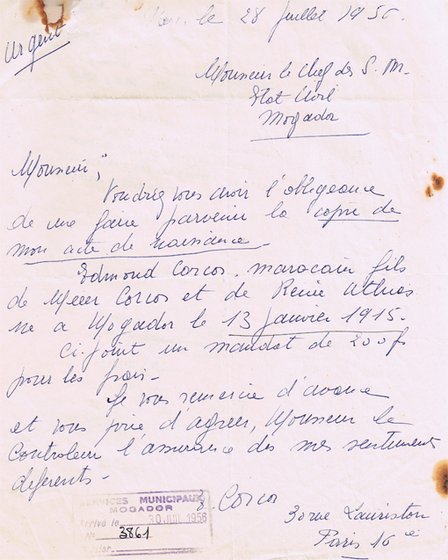 le 28 Juillet 1956.
Urgent
Monsieur le Chef des S. M.
Etat Civil
Mogador
Monsieur,
Voudriez vous avoir l'obligeance
de me faire parvenir la copie de
mon acte de naissance.
Edmond Corcos. marocain fils
de Meier Corcos et de Renée
né a Mogador le 13 janvier 1915.
Ci-joint un mandat de 200f
pour les frais-
Je vous remercie d'avance
et vous prie d'agréer, Monsieur le
Controleur l'assurance des mes sentiment
deferents-
SERVICES MUNICIPAUX
MOGADOR
Arrivé le 30 JUIL 1956
No 3861
E. Corcos
30 rue Lauriston
Paris 16e